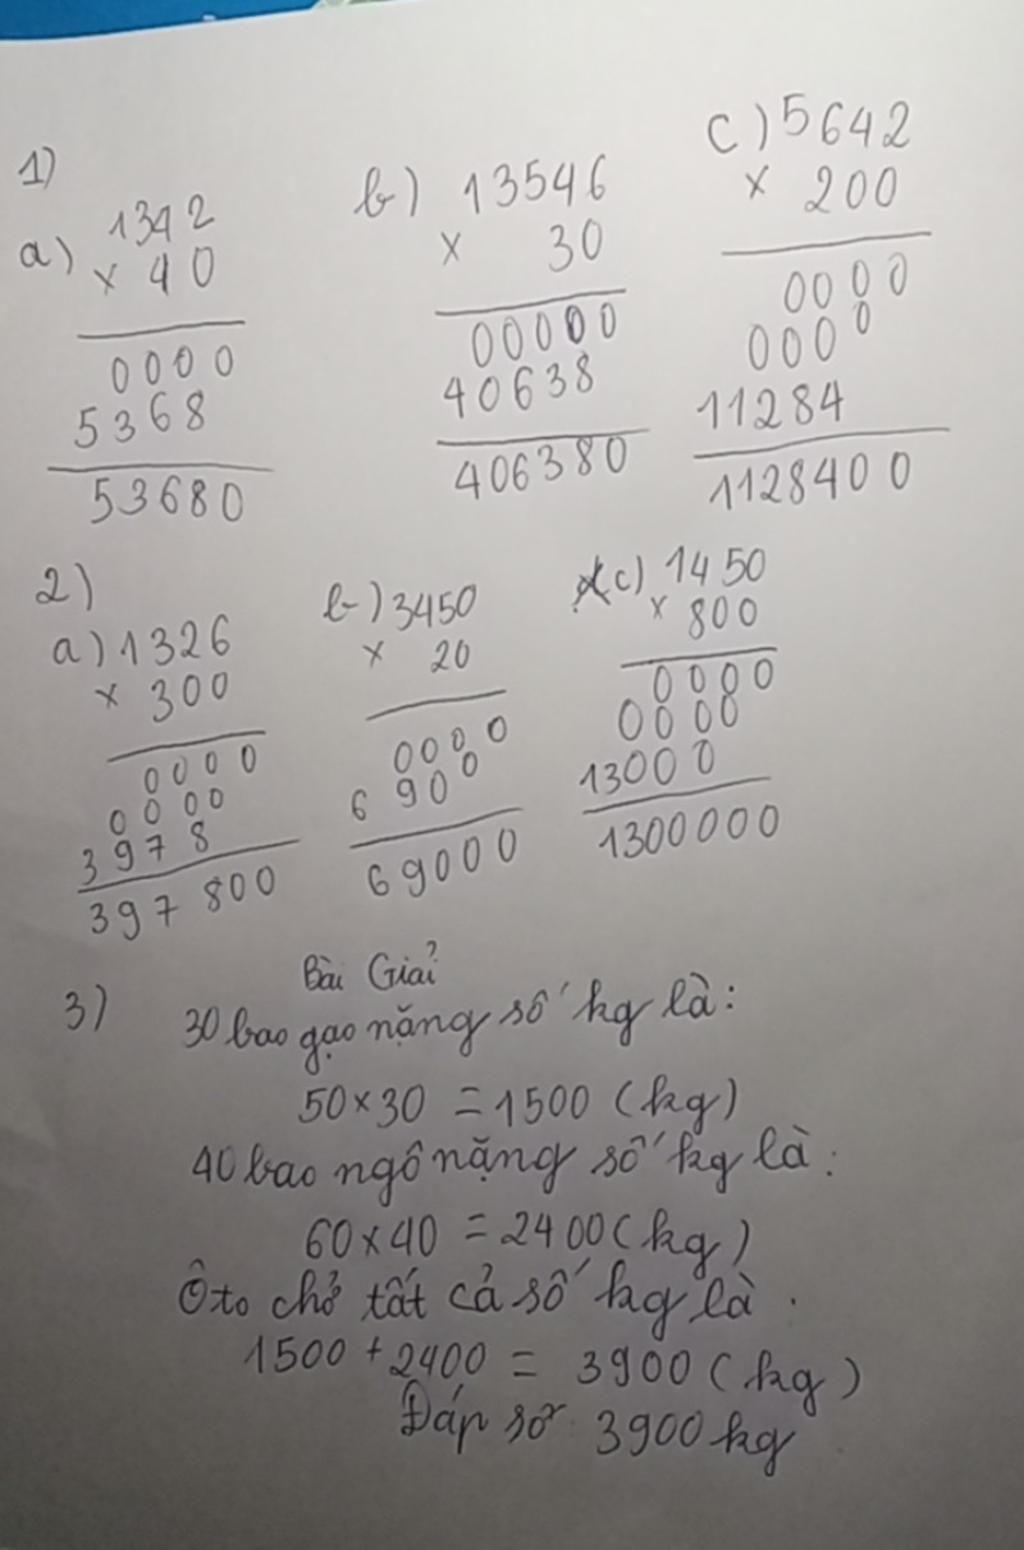 1)
a) 1342
× 40
0000
5368
53680
b) 13546
× 30
00000
40638
406380
c) 5642
× 200
0000
0000
11284
1128400
2)
a) 1326
× 300
0000
0000
3978
397800
b) 3450
× 20
0000
6900
69000
c) 1450
× 800
0000
0000
13000
1300000
Bài Giải
3) 30 bao gạo nặng số kg là:
50 × 30 = 1500 (kg)
40 bao ngô nặng số kg là:
60 × 40 = 2400 (kg)
Ôto chở tất cả số kg là.
1500 + 2400 = 3900 (kg)
Đáp số: 3900 kg